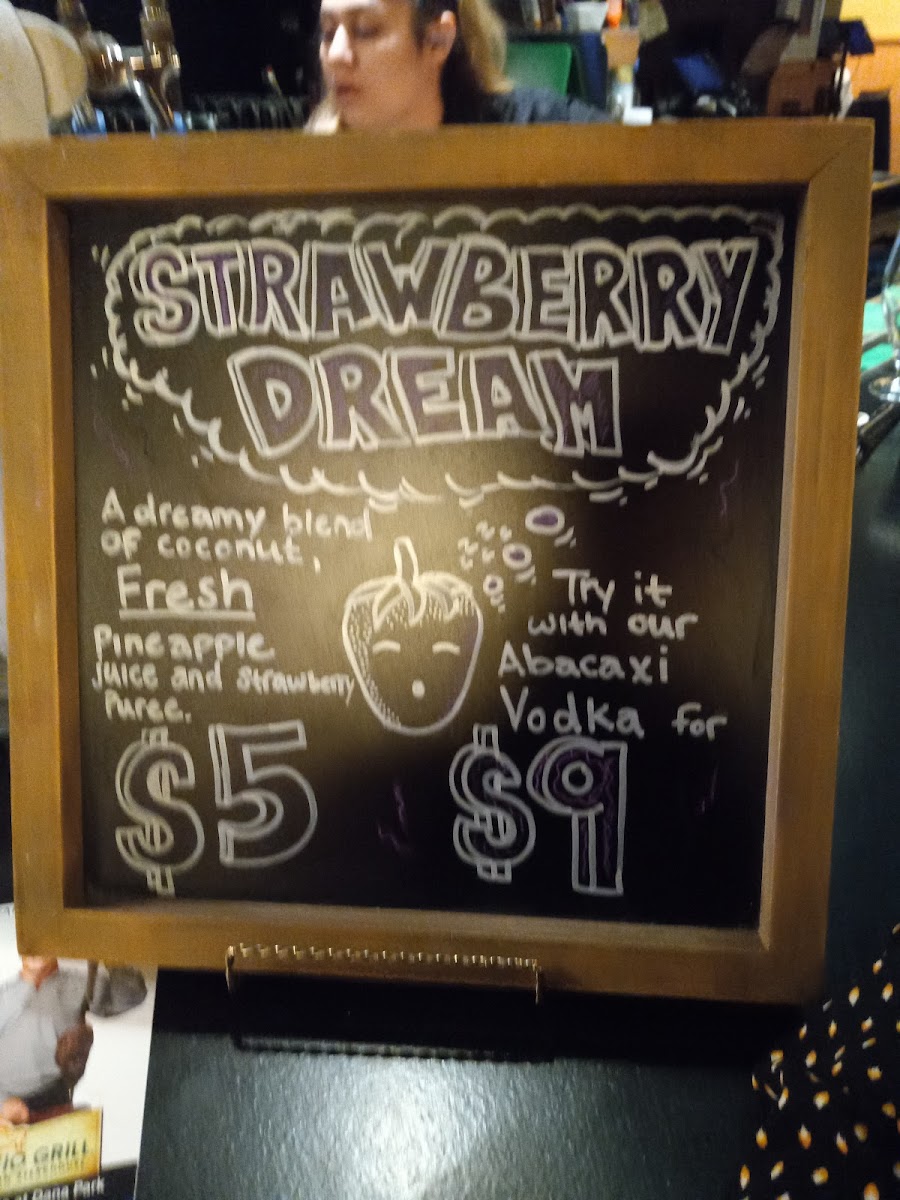 STRAWBERRY
DREAM
A dreamy blend
of coconut,
Fresh
Pineapple
juice and strawberry
Puree.
$5
Try it
with our
Abacaxi
Vodka for
$9
IO GRILL
at Dana Park